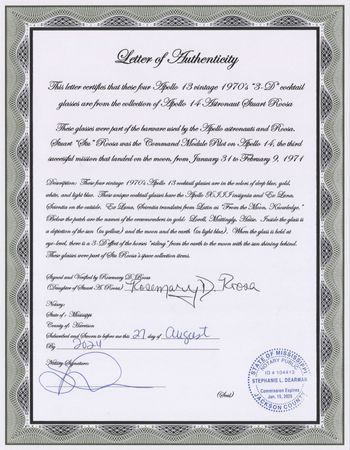 Letter of Authenticity
This letter certifies that these four Apollo 13 vintage 1970's "3-D" cocktail
glasses are from the collection of Apollo 14 Astronaut Stuart Roosa
These glasses were part of the hardware used by the Apollo astronauts and Roosa.
Stuart "Stu" Roosa was the Command Module Pilot on Apollo 14, the third
successful mission that landed on the moon, from January 31 to February 9, 1971
Description: These four vintage 1970's Apollo 13 cocktail glasses are in the colors of deep blue, gold,
white, and light blue. These unique cocktail glasses have the Apollo XIII insignia and Ex Luna,
Scientia on the outside. Ex Luna, Scientia translates from Latin as "From the Moon, Knowledge."
Below the patch are the names of the crewmembers in gold: Lovell, Mattingly, Haise. Inside the glass is
a depiction of the sun (in yellow) and the moon and the earth (in light blue). When the glass is held at
eye-level, there is a 3-D effect of the horses "riding" from the earth to the moon with the sun shining behind.
These glasses were part of Stu Roosa's space collection items.
Signed and Verified by Rosemary D. Roosa
(Daughter of Stuart A. Roosa) Rosemary D. Roosa
Notary:
State of: Mississippi
County of: Harrison
Subscribed and Sworn to before me this 27 day of August
By 2024
Notary Signature:
(Seal)
STATE OF MISSISSIPPI
NOTARY PUBLIC
ID # 104413
STEPHANIE L. DEARMAN
Commission Expires
Jan. 15, 2025
JACKSON COUNTY